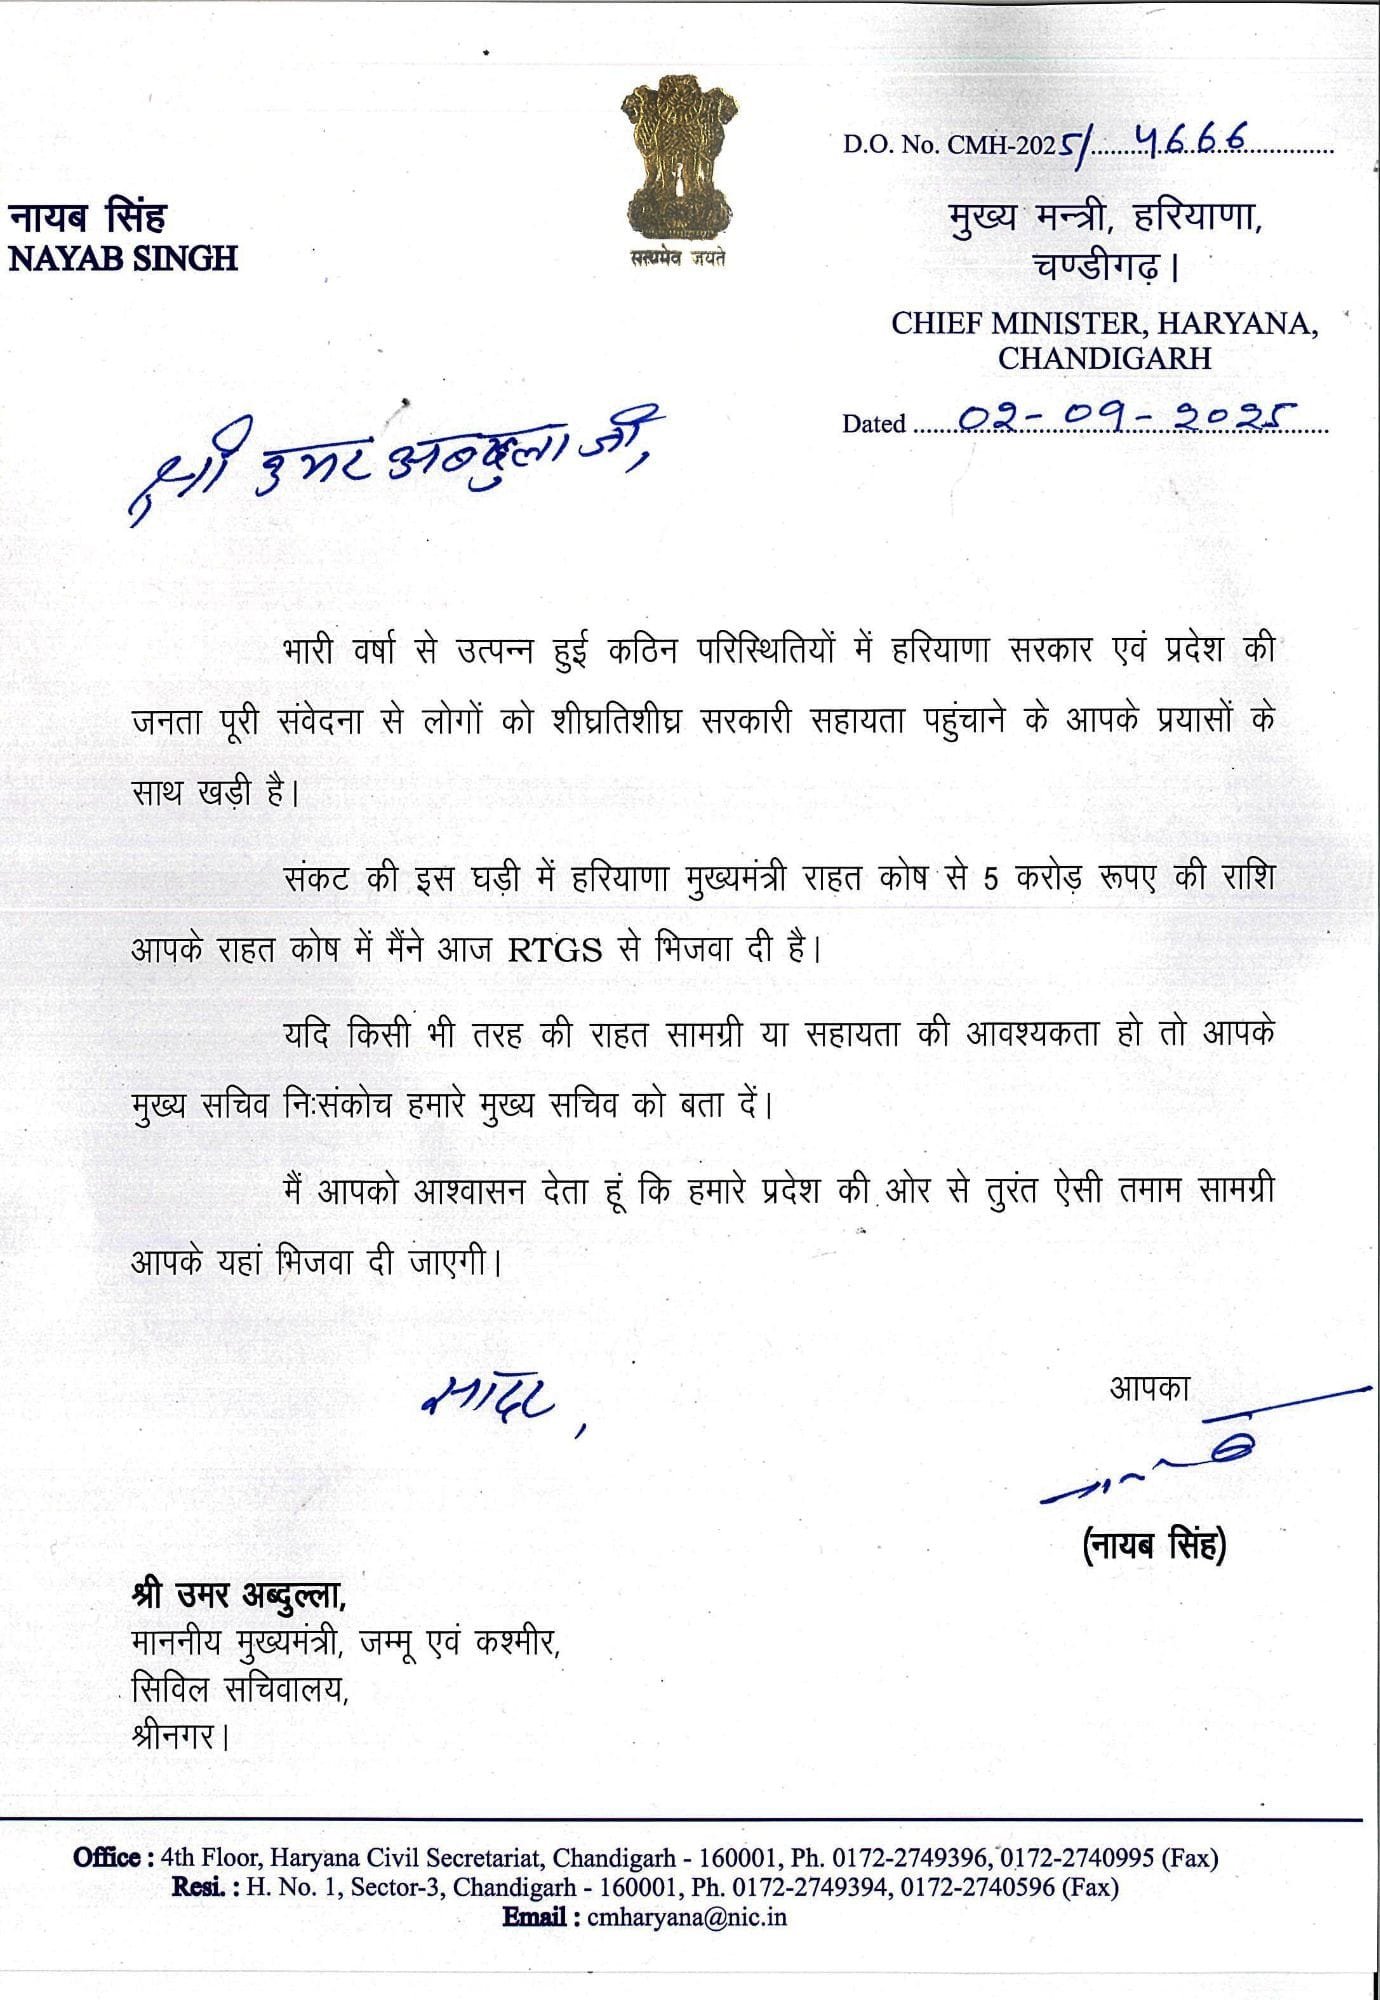 D.O. No. CMH-2025/ 4666
नायब सिंह
NAYAB SINGH
सत्यमेव जयते
मुख्य मन्त्री, हरियाणा,
चण्डीगढ़।
CHIEF MINISTER, HARYANA,
CHANDIGARH
Dated 02-09-2025
श्री उमर अब्दुल्ला जी,
भारी वर्षा से उत्पन्न हुई कठिन परिस्थितियों में हरियाणा सरकार एवं प्रदेश की
जनता पूरी संवेदना से लोगों को शीघ्रतिशीघ्र सरकारी सहायता पहुंचाने के आपके प्रयासों के
साथ खड़ी है।
संकट की इस घड़ी में हरियाणा मुख्यमंत्री राहत कोष से 5 करोड़ रूपए की राशि
आपके राहत कोष में मैंने आज RTGS से भिजवा दी है।
यदि किसी भी तरह की राहत सामग्री या सहायता की आवश्यकता हो तो आपके
मुख्य सचिव निःसंकोच हमारे मुख्य सचिव को बता दें।
मैं आपको आश्वासन देता हूं कि हमारे प्रदेश की ओर से तुरंत ऐसी तमाम सामग्री
आपके यहां भिजवा दी जाएगी।
सादर,
आपका
(नायब सिंह)
श्री उमर अब्दुल्ला,
माननीय मुख्यमंत्री, जम्मू एवं कश्मीर,
सिविल सचिवालय,
श्रीनगर।
Office : 4th Floor, Haryana Civil Secretariat, Chandigarh - 160001, Ph. 0172-2749396, 0172-2740995 (Fax)
Resi. : H. No. 1, Sector-3, Chandigarh - 160001, Ph. 0172-2749394, 0172-2740596 (Fax)
Email : cmharyana@nic.in